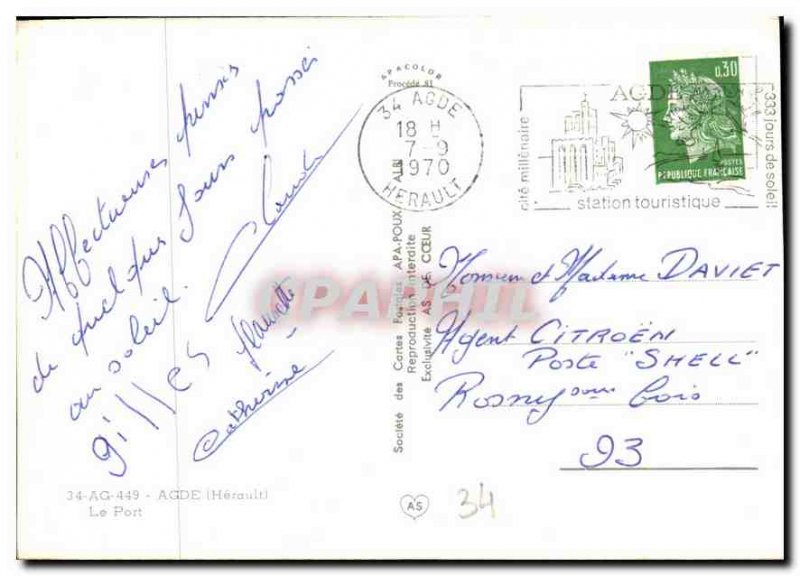 Affectueuses pensées
de quelques jours passés
au soleil. Claude
gilles
Catherine
34-AG-449 - AGDE (Hérault)
Le Port
APACOLOR
Procédé 81
Société des Cartes Postales APA-POUX - ALBI
Reproduction interdite
Exclusivité AS DE CŒUR
AS
34
34 AGDE
18 H
7-9
1970
HERAULT
cité millénaire
AGDE
333 jours de soleil
station touristique
0,30
POSTES
REPUBLIQUE FRANÇAISE
Monsieur et Madame DAVIET
Agent CITROËN
Poste "SHELL"
Rosny sous bois
93
CPAPHIL